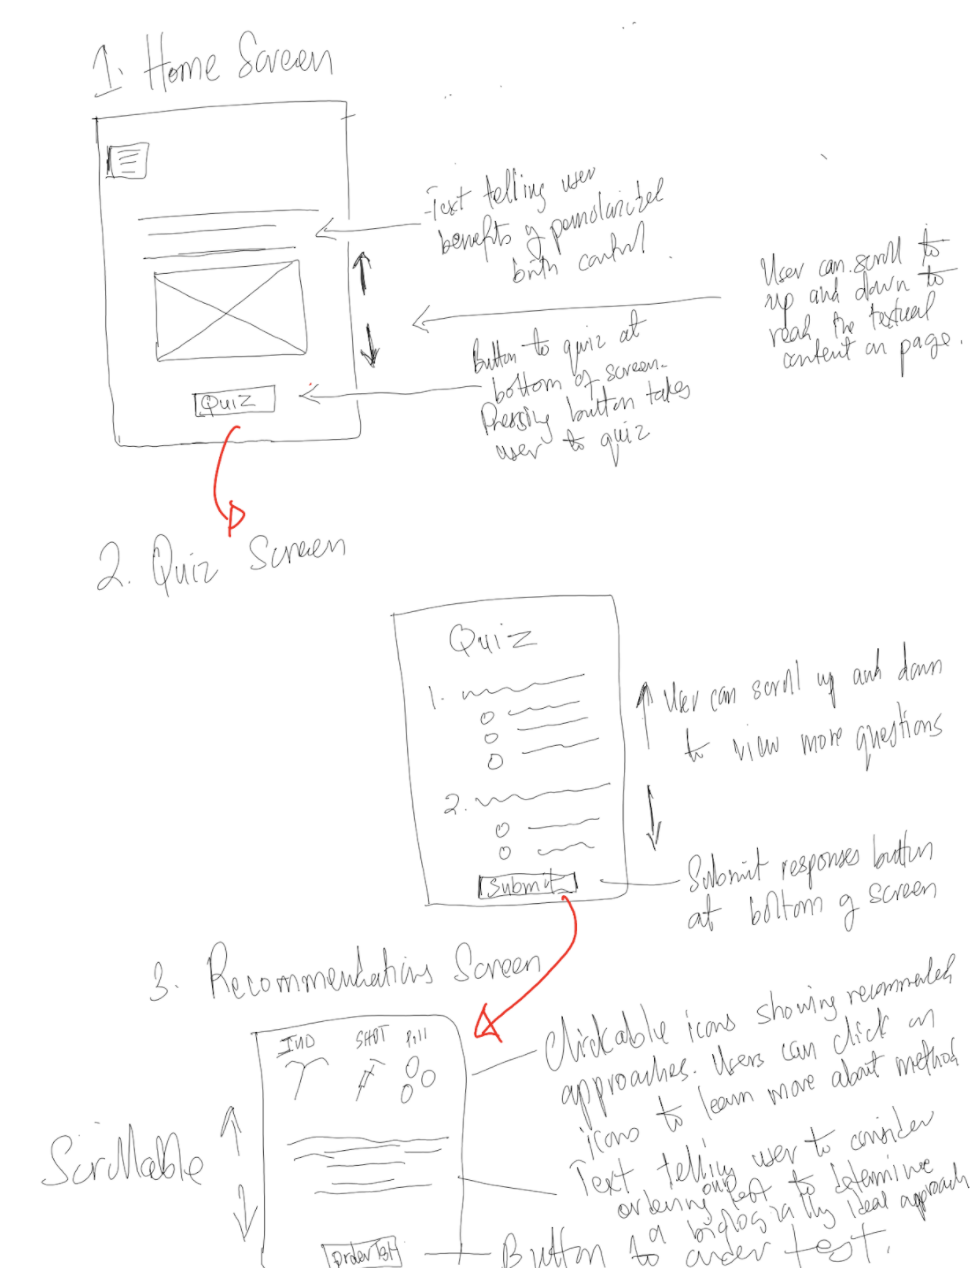 1. Home Screen
-Text telling user
benefits of personalized
birth control.
User can scroll to
up and down to
read the textual
content on page.
Button to quiz at
bottom of screen.
Pressing button takes
user to quiz
Quiz
2. Quiz Screen
Quiz
1.
2.
Submit
User can scroll up and down
to view more questions
Submit responses button
at bottom of screen
3. Recommendations Screen
IUD SHOT Pill
Clickable icons showing recommended
approaches. Users can click on
icons to learn more about method
Scrollable
Text telling user to consider
ordering our test to determine
a biologically ideal approach
Order Test
Button to order test.